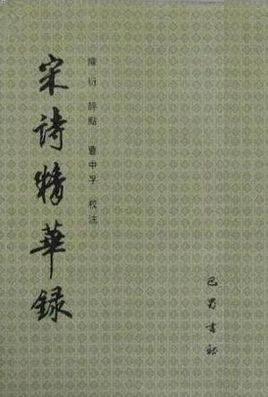 宋詩精華録
陳衍 評點 曹中孚 校注
巴蜀書社